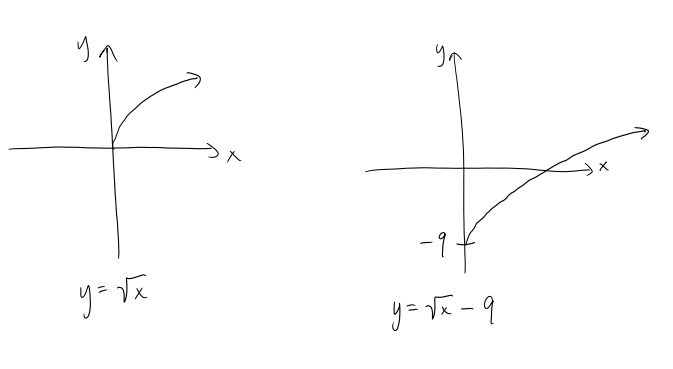 y
x
y = √x
y
x
-9
y = √x - 9